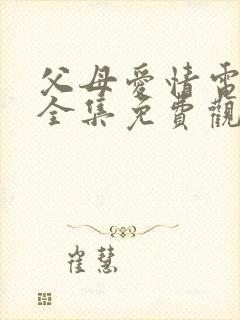 父母愛情電
全集免費觀
崔慧